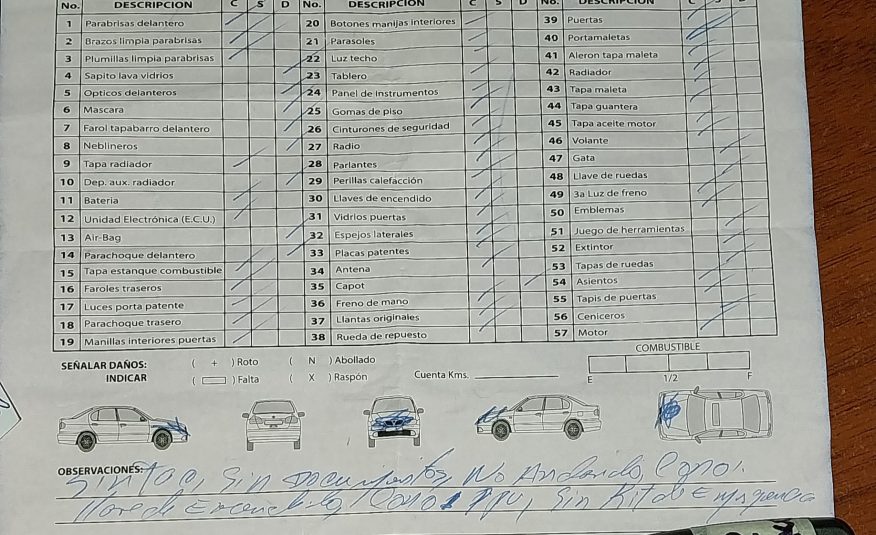 No. DESCRIPCION C S D No. DESCRIPCIÓN C S D No. DESCRIPCIÓN C
1 Parabrisas delantero 20 Botones manijas interiores 39 Puertas
2 Brazos limpia parabrisas 21 Parasoles 40 Portamaletas
3 Plumillas limpia parabrisas 22 Luz techo 41 Aleron tapa maleta
4 Sapito lava vidrios 23 Tablero 42 Radiador
5 Opticos delanteros 24 Panel de instrumentos 43 Tapa maleta
6 Mascara 25 Gomas de piso 44 Tapa guantera
7 Farol tapabarro delantero 26 Cinturones de seguridad 45 Tapa aceite motor
8 Neblineros 27 Radio 46 Volante
9 Tapa radiador 28 Parlantes 47 Gata
10 Dep. aux. radiador 29 Perillas calefacción 48 Llave de ruedas
11 Bateria 30 Llaves de encendido 49 3a Luz de freno
12 Unidad Electrónica (E.C.U.) 31 Vidrios puertas 50 Emblemas
13 Air-Bag 32 Espejos laterales 51 Juego de herramientas
14 Parachoque delantero 33 Placas patentes 52 Extintor
15 Tapa estanque combustible 34 Antena 53 Tapas de ruedas
16 Faroles traseros 35 Capot 54 Asientos
17 Luces porta patente 36 Freno de mano 55 Tapis de puertas
18 Parachoque trasero 37 Llantas originales 56 Ceniceros
19 Manillas interiores puertas 38 Rueda de repuesto 57 Motor
SEÑALAR DAÑOS: ( + ) Roto ( N ) Abollado COMBUSTIBLE
INDICAR ( ) Falta ( X ) Raspón Cuenta Kms. E 1/2 F
OBSERVACIONES: Sin Tac, Sin Documentos, No Andando, Copo.
Sin Kit de Emergencia